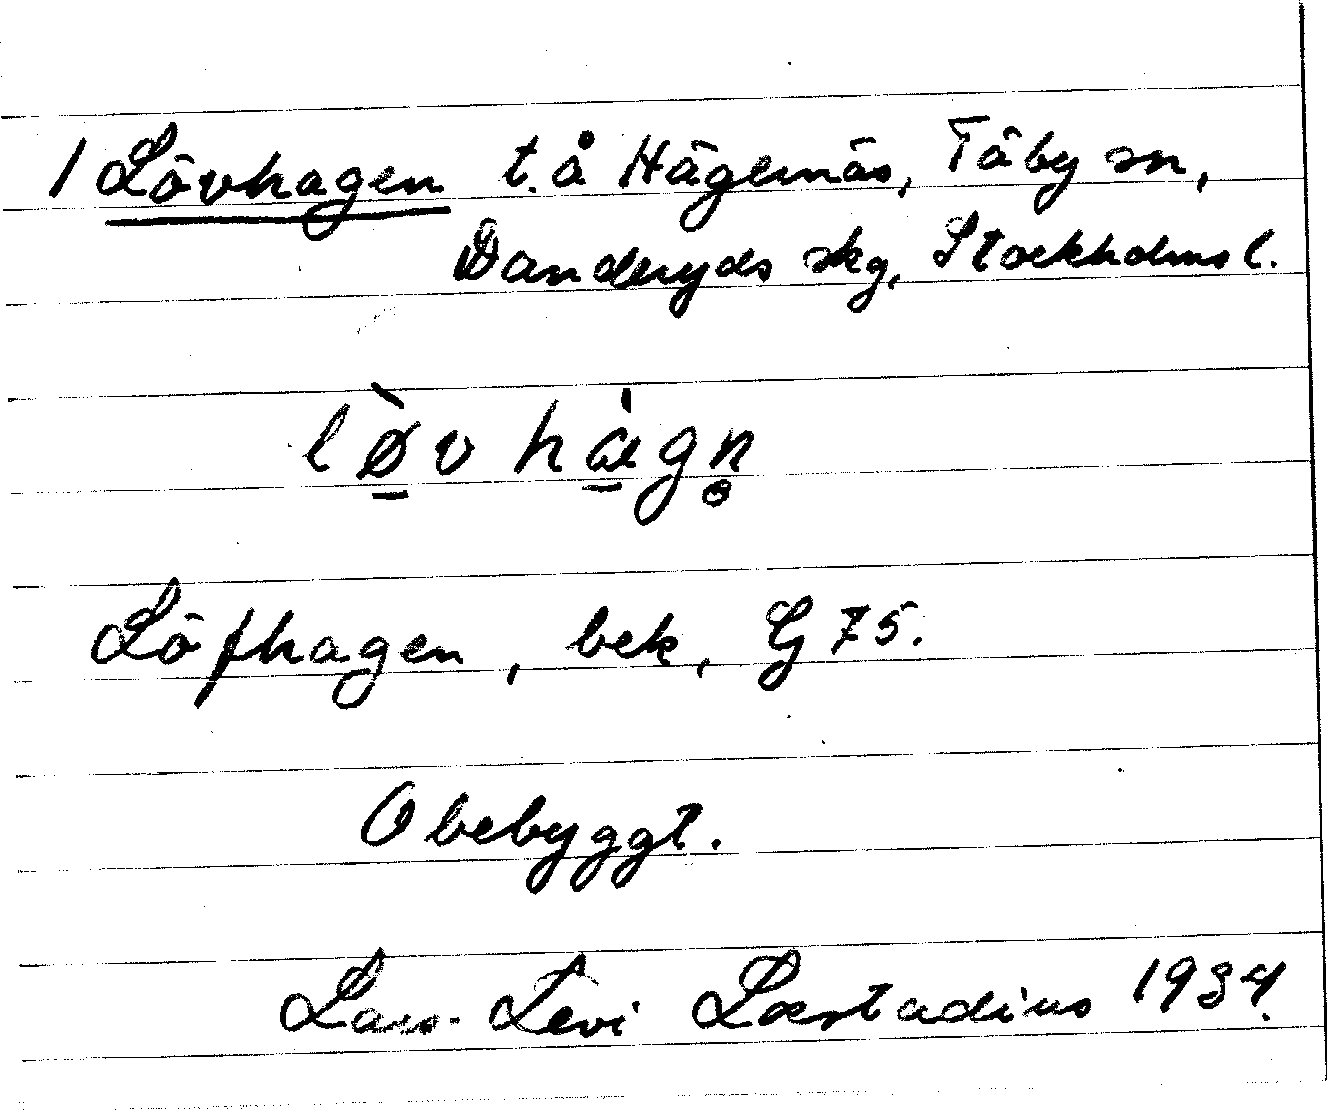 1 Lövhagen t. å Hägernäs, Täby sn,
Danderyds skg, Stockholms l.
lø̀v hàgn̥
Löfhagen, bek, G 75.
Obebyggt.
Lars-Levi Læstadius 1934.